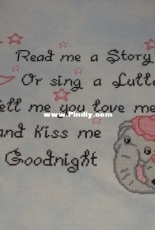 Read me a Story
Or sing a Lulla
ell me you love me
and Kiss me
Goodnight
www.Pindiy.com